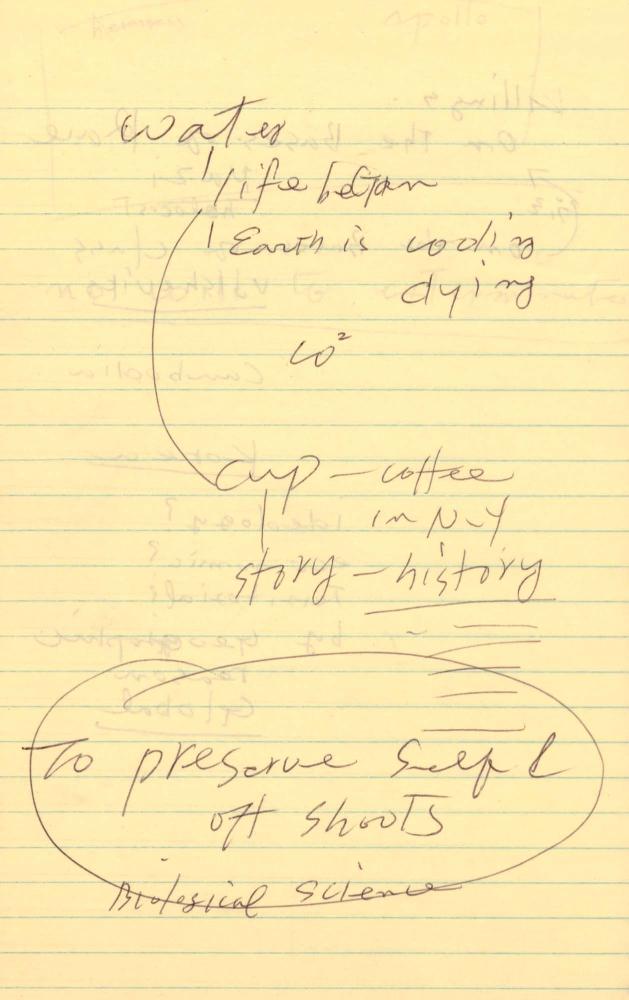 water
life began
Earth is cooling
dying
CO²
cup - coffee
in N-Y
story - history
To preserve self &
off shoots
Biological science